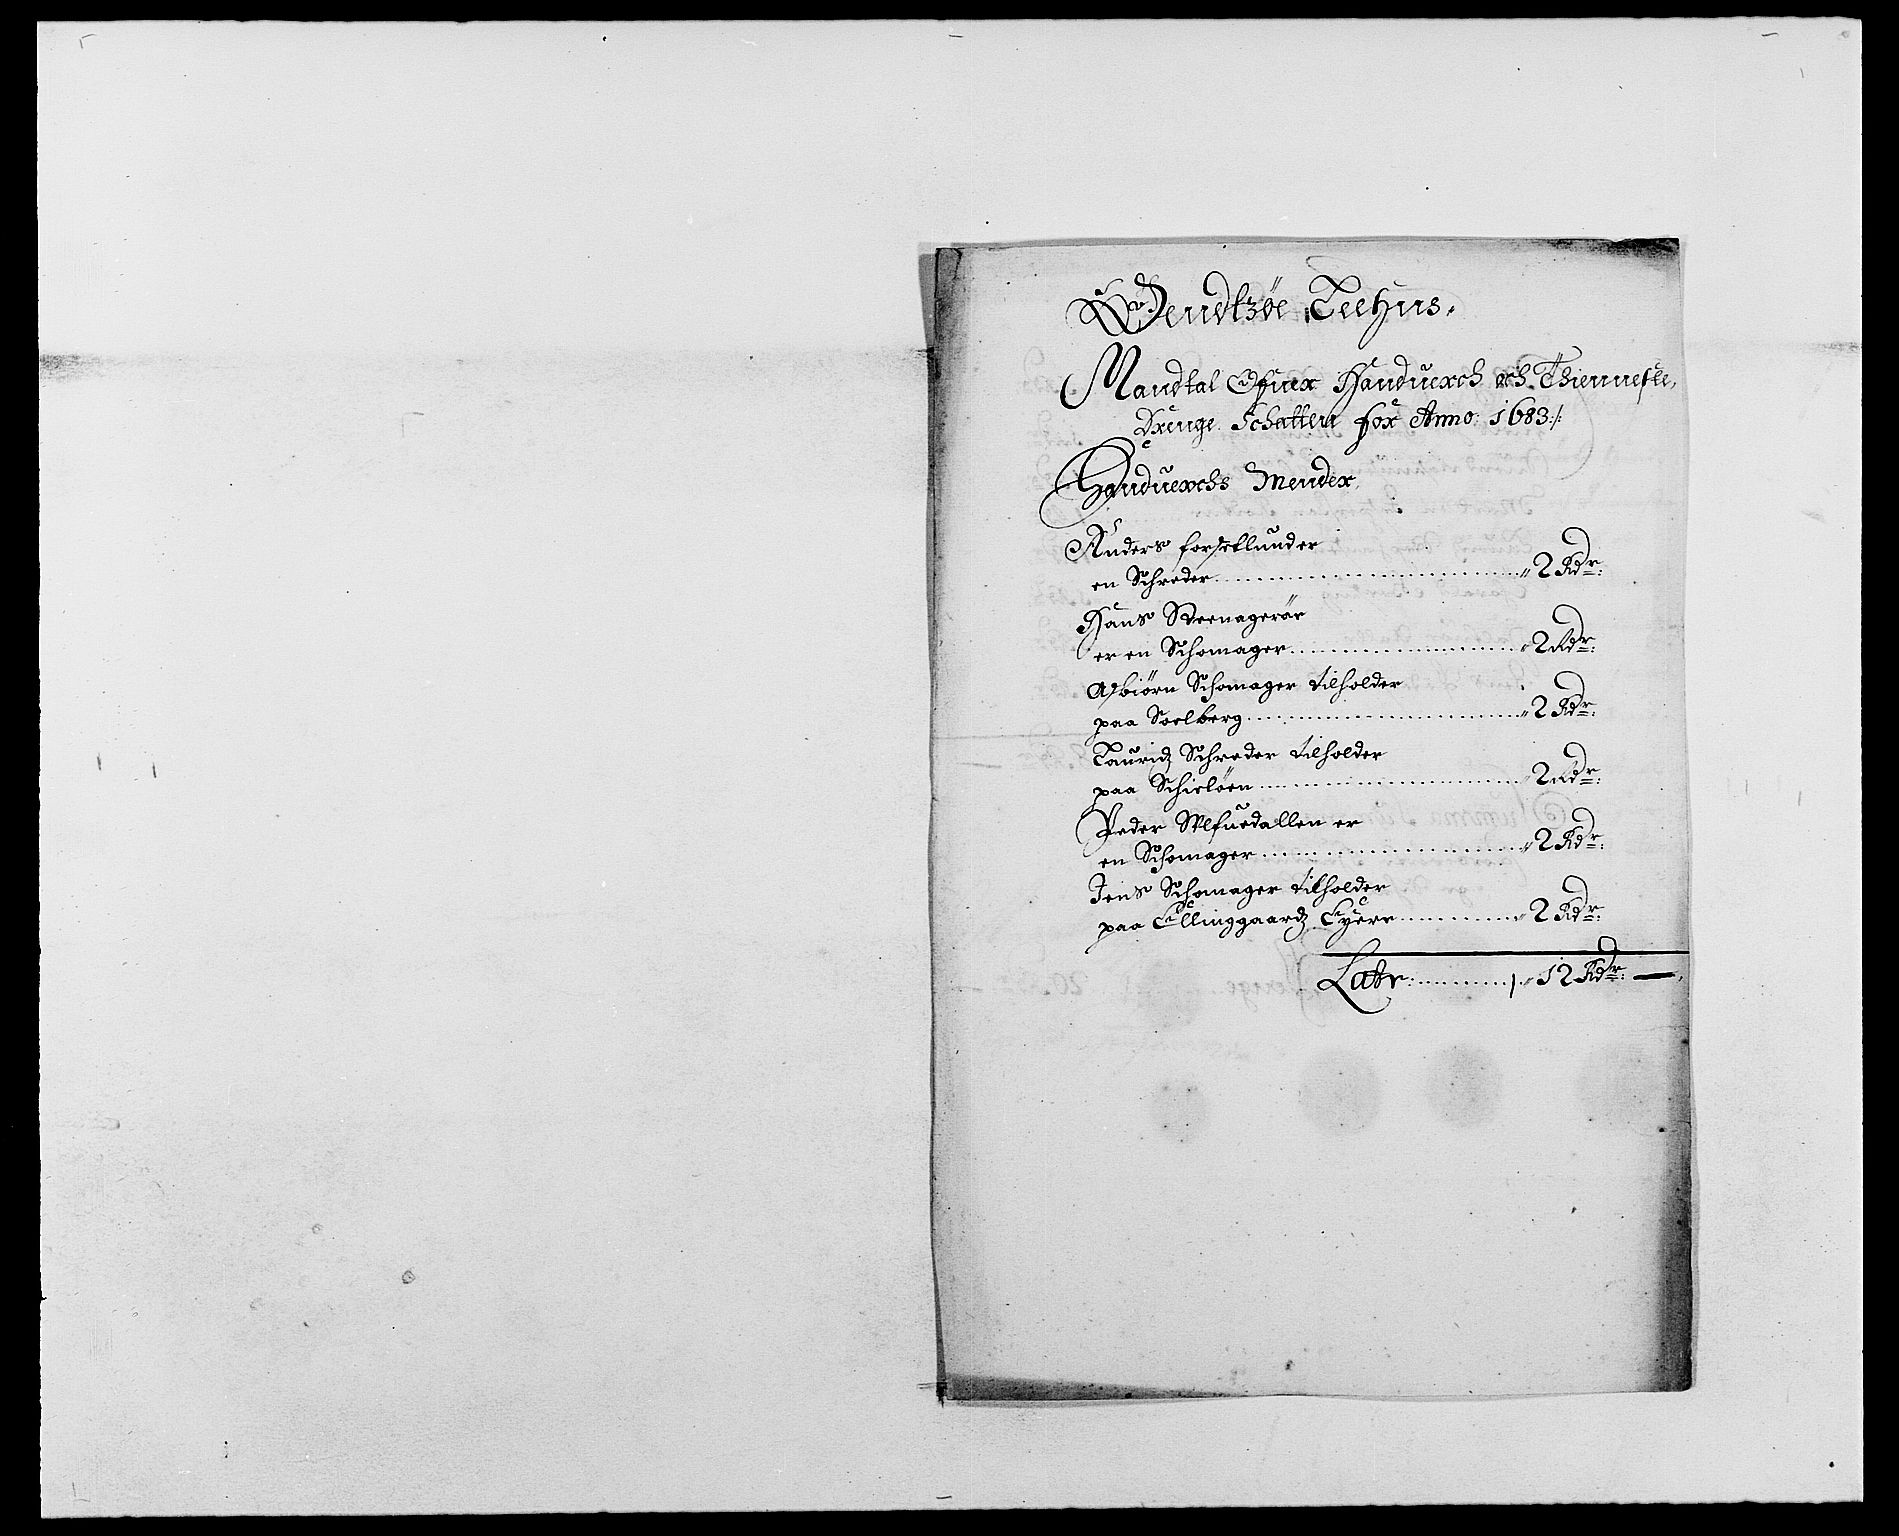 Wendtzøe Leehns.
Mandtal Ofuer Handuerch och Thienneste
Drenge Schatten for Anno: 1683:/:
Handuerchs Mender
Anders forsetlunder
en Schreder . . . . 2 Rdr:
Hans Steenagerør
er en Schomager . . . . 2 Rdr:
Asbiørn Schomager tilholder
paa Soelberg . . . . 2 Rdr:
Lauridz Schreder tilholder
paa Schieløen . . . . 2 Rdr:
Peder Ulfuedallen er
en Schomager . . . . 2 Rdr:
Jens Schomager tilholder
paa Ellinggaardz Eyere . . . . 2 Rdr:
Latr: . . . . 12 Rdr: —